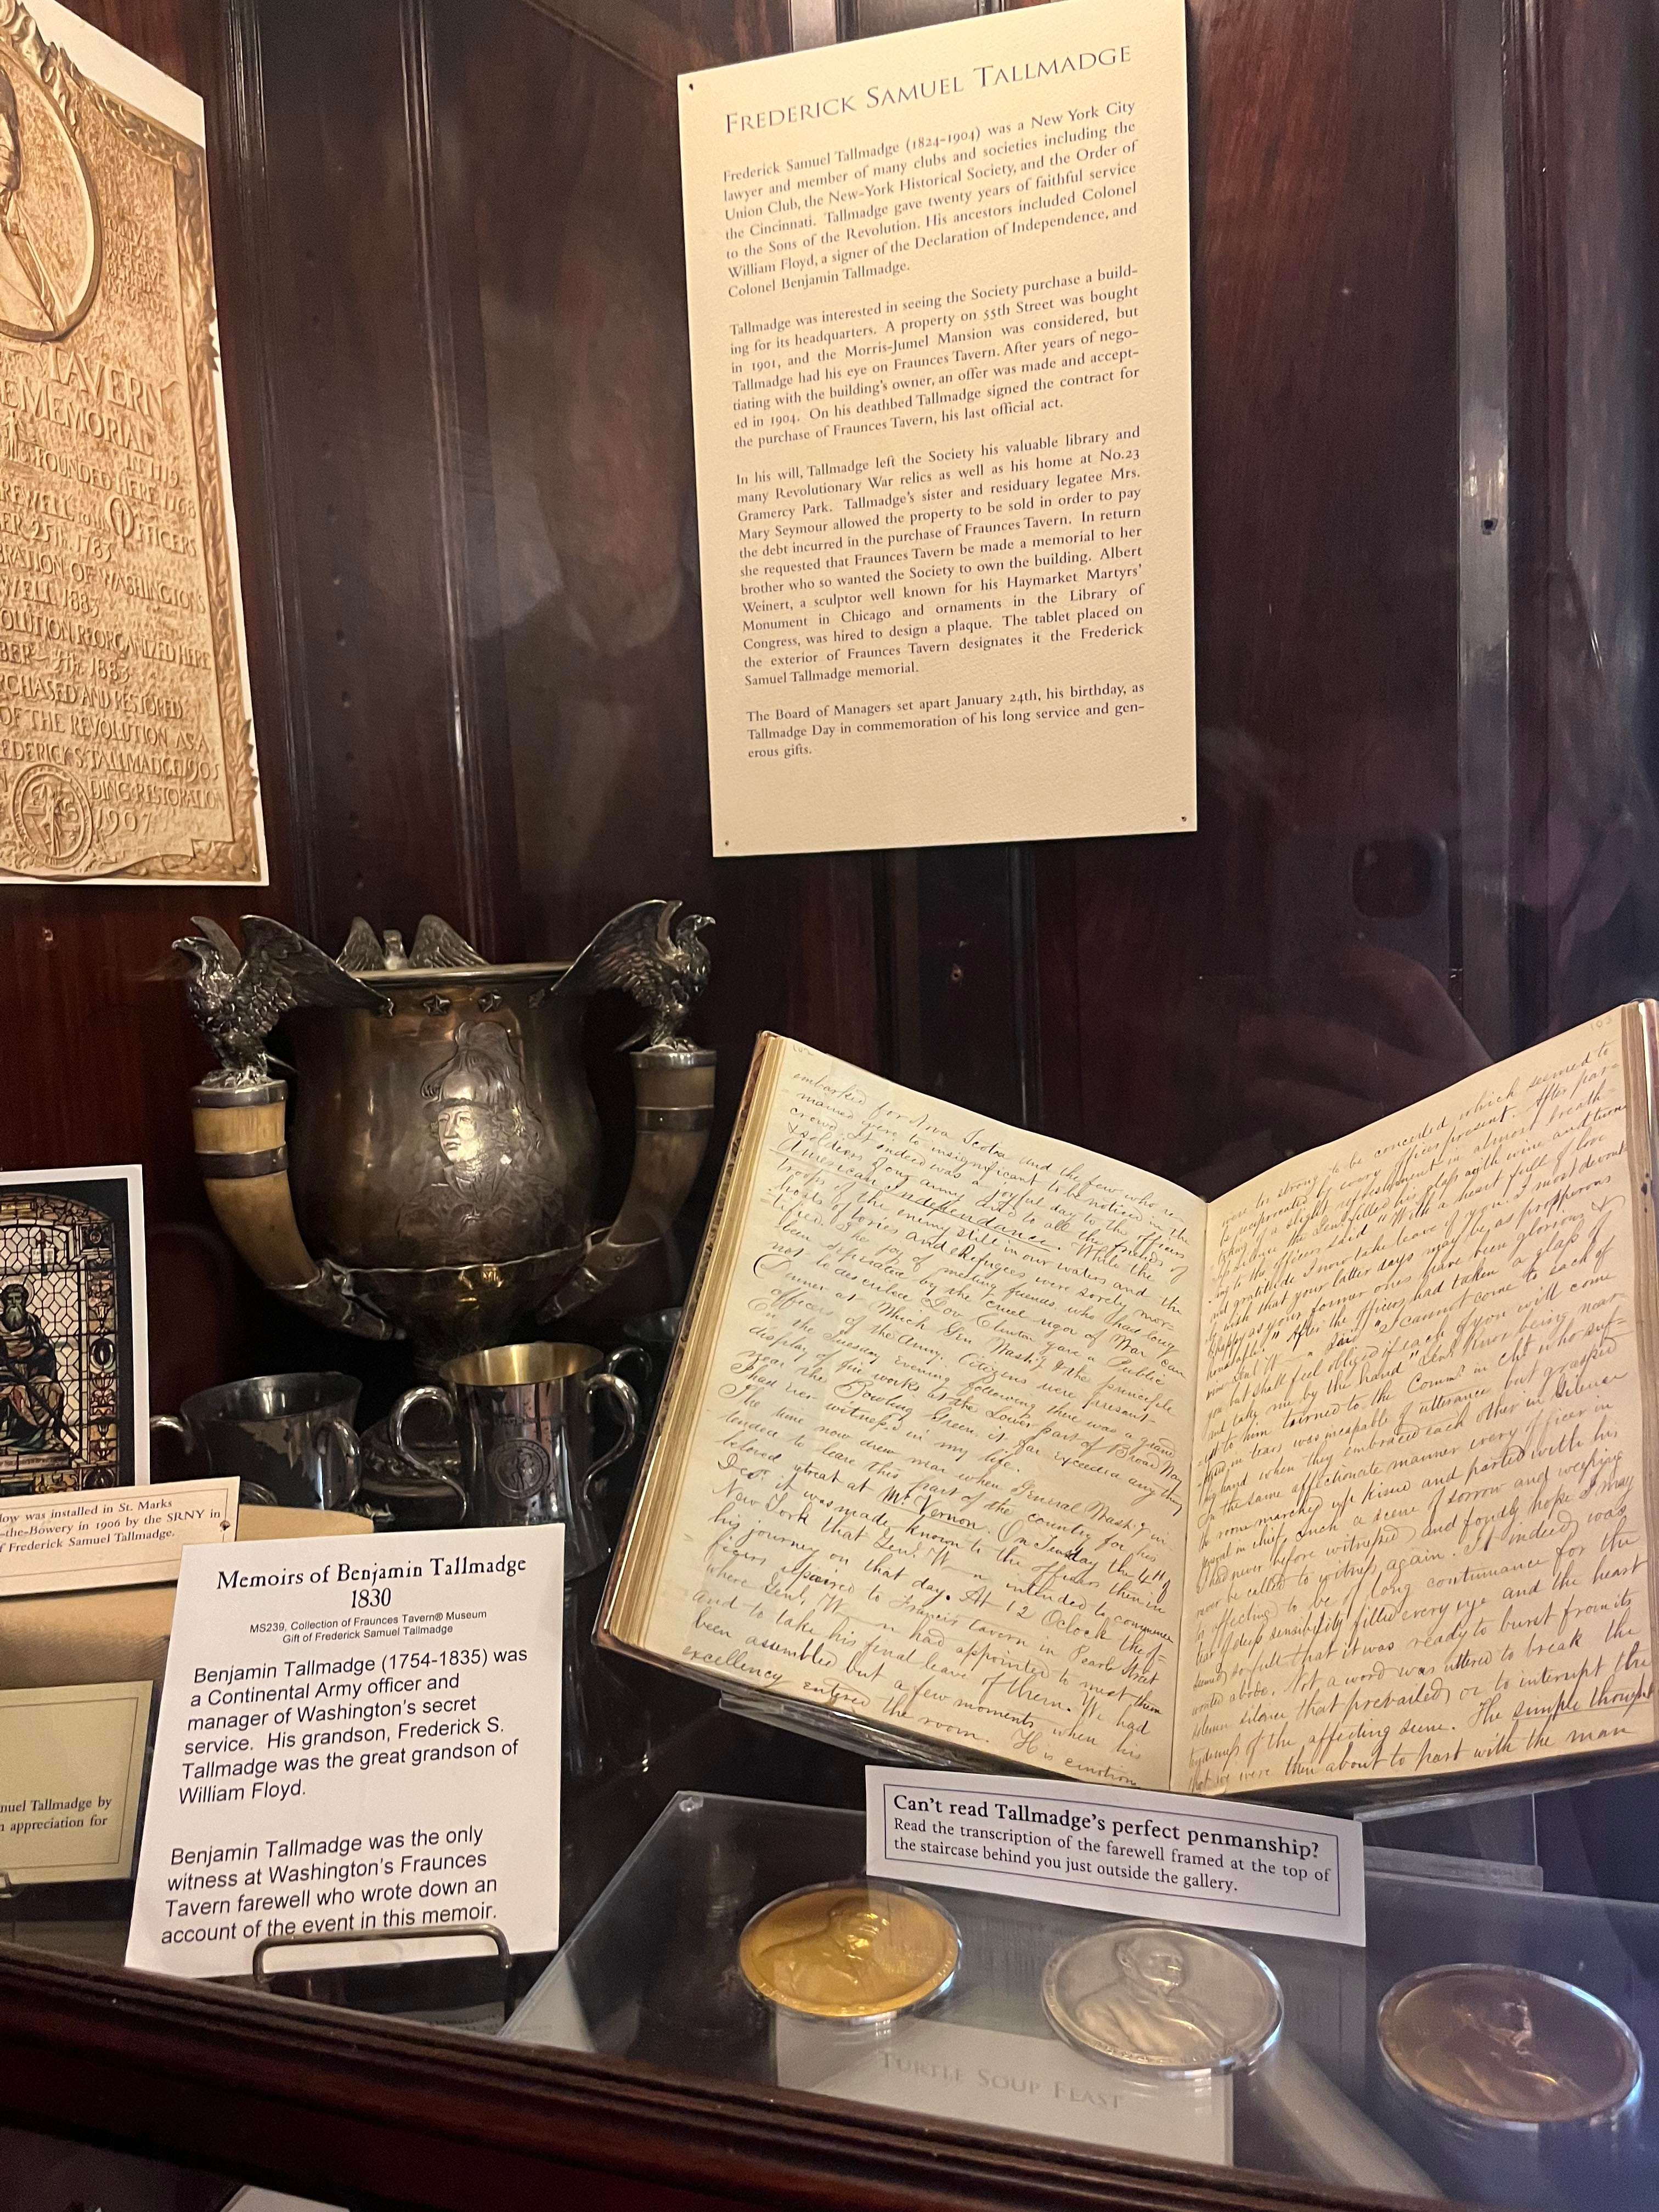 TAVERN
MEMORIAL
IN 1719
FOUNDED HERE 1768
FAREWELL TO HIS OFFICERS
25TH 1783
WASHINGTON'S
1883
REORGANIZED HERE
4TH 1883
AND RESTORED
OF THE REVOLUTION AS A
FREDERICK S TALLMADGE 1905
RESTORATION
1907
FREDERICK SAMUEL TALLMADGE
Frederick Samuel Tallmadge (1824-1904) was a New York City
lawyer and member of many clubs and societies including the
Union Club, the New-York Historical Society, and the Order of
the Cincinnati. Tallmadge gave twenty years of faithful service
to the Sons of the Revolution. His ancestors included Colonel
William Floyd, a signer of the Declaration of Independence, and
Colonel Benjamin Tallmadge.
Tallmadge was interested in seeing the Society purchase a build-
ing for its headquarters. A property on 55th Street was bought
in 1901, and the Morris-Jumel Mansion was considered, but
Tallmadge had his eye on Fraunces Tavern. After years of nego-
tiating with the building's owner, an offer was made and accept-
ed in 1904. On his deathbed Tallmadge signed the contract for
the purchase of Fraunces Tavern, his last official act.
In his will, Tallmadge left the Society his valuable library and
many Revolutionary War relics as well as his home at No.23
Gramercy Park. Tallmadge's sister and residuary legatee Mrs.
Mary Seymour allowed the property to be sold in order to pay
the debt incurred in the purchase of Fraunces Tavern. In return
she requested that Fraunces Tavern be made a memorial to her
brother who so wanted the Society to own the building. Albert
Weinert, a sculptor well known for his Haymarket Martyrs'
Monument in Chicago and ornaments in the Library of
Congress, was hired to design a plaque. The tablet placed on
the exterior of Fraunces Tavern designates it the Frederick
Samuel Tallmadge memorial.
The Board of Managers set apart January 24th, his birthday, as
Tallmadge Day in commemoration of his long service and gen-
erous gifts.
embarked for Nova Scotia and the few who re-
mained were to insignificant to be noticed in the
crowd. It indeed was a joyful day to the officers
& soldiers of our army and to all the friends of
American Independance. While the
troops of the enemy still in our waters and the
hosts of tories and Refugees were sorely mor-
tified. The joy of meeting friends who had long
been separated by the cruel rigor of War can
not be described. Gov. Clinton gave a Public
Dinner at which Gen Wash'g & the principle
officers of the Army. Citizens were present.
On the Tuesday evening following there was a grand
display of fire works at the Lower part of Broad Way
near the Bowling Green. it far exceedin anything
I had ever witness'd in my life.
The time now drew near when General Wash'g in-
tended to leave this part of the country for his
beloved retreat at Mt Vernon. On Tuesday the 4th of
Decr. it was made known to the officers then in
New York that Genl. W—n intended to commence
his journey on that day. At 12 Oclock the of-
ficers repaired to Francis tavern in Pearl Street
where Genl. W—n had appointed to meet them
and to take his final leave of them. We had
been assembled but a few moments when his
excellency entered the room. His emotion
103
were to strong to be concealed which seemed to
be reciprocated by every officer present. After par-
taking of a slight refreshment in almost breath-
less silence the Genl filled his glass with wine and turn-
ing to the officers said "With a heart full of love
and gratitude I now take leave of you. I most devout-
ly wish that your latter days may be as prosperous
& happy as your former ones have been glorious &
honorable." After the officers had taken a glass of
wine Genl W—n said "I cannot come to each of
you but shall feel obliged if each of you will come
and take me by the hand" Genl Knox being near-
est to him turned to the Comm' in chf. who suf-
fused in tears was incapable of utterance but grasped
his hand when they embraced each other in silence
In the same affectionate manner every officer in
the room marched up kissed and parted with his
general in chief. Such a scene of sorrow and weeping
I had never before witnessed and fondly hope I may
never be called to witness again. It indeed was
to affecting to be of long continuance for the
tear of deep sensibility filled every eye and the heart
seemed so full that it was ready to burst from its
wonted abode. Not a word was uttered to break the
solemn silence that prevailed or to interrupt the
tenderness of the affecting scene. The simple thought
that we were then about to part with the man
low was installed in St. Marks
-the-Bowery in 1906 by the SRNY in
f Frederick Samuel Tallmadge.
Memoirs of Benjamin Tallmadge
1830
MS239, Collection of Fraunces Tavern® Museum
Gift of Frederick Samuel Tallmadge
Benjamin Tallmadge (1754-1835) was
a Continental Army officer and
manager of Washington's secret
service. His grandson, Frederick S.
Tallmadge was the great grandson of
William Floyd.
Benjamin Tallmadge was the only
witness at Washington's Fraunces
Tavern farewell who wrote down an
account of the event in this memoir.
nuel Tallmadge by
n appreciation for
Can't read Tallmadge's perfect penmanship?
Read the transcription of the farewell framed at the top of
the staircase behind you just outside the gallery.
TURTLE SOUP FEAST